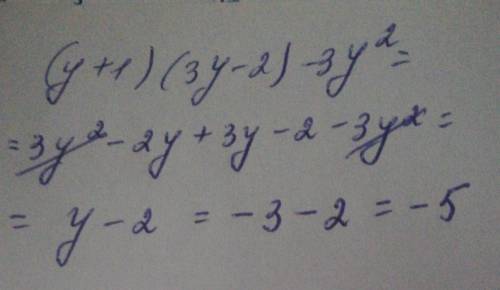 (y+1)(3y-2)-3y²=
=3y²-2y+3y-2-3y²=
= y-2 = -3-2 = -5